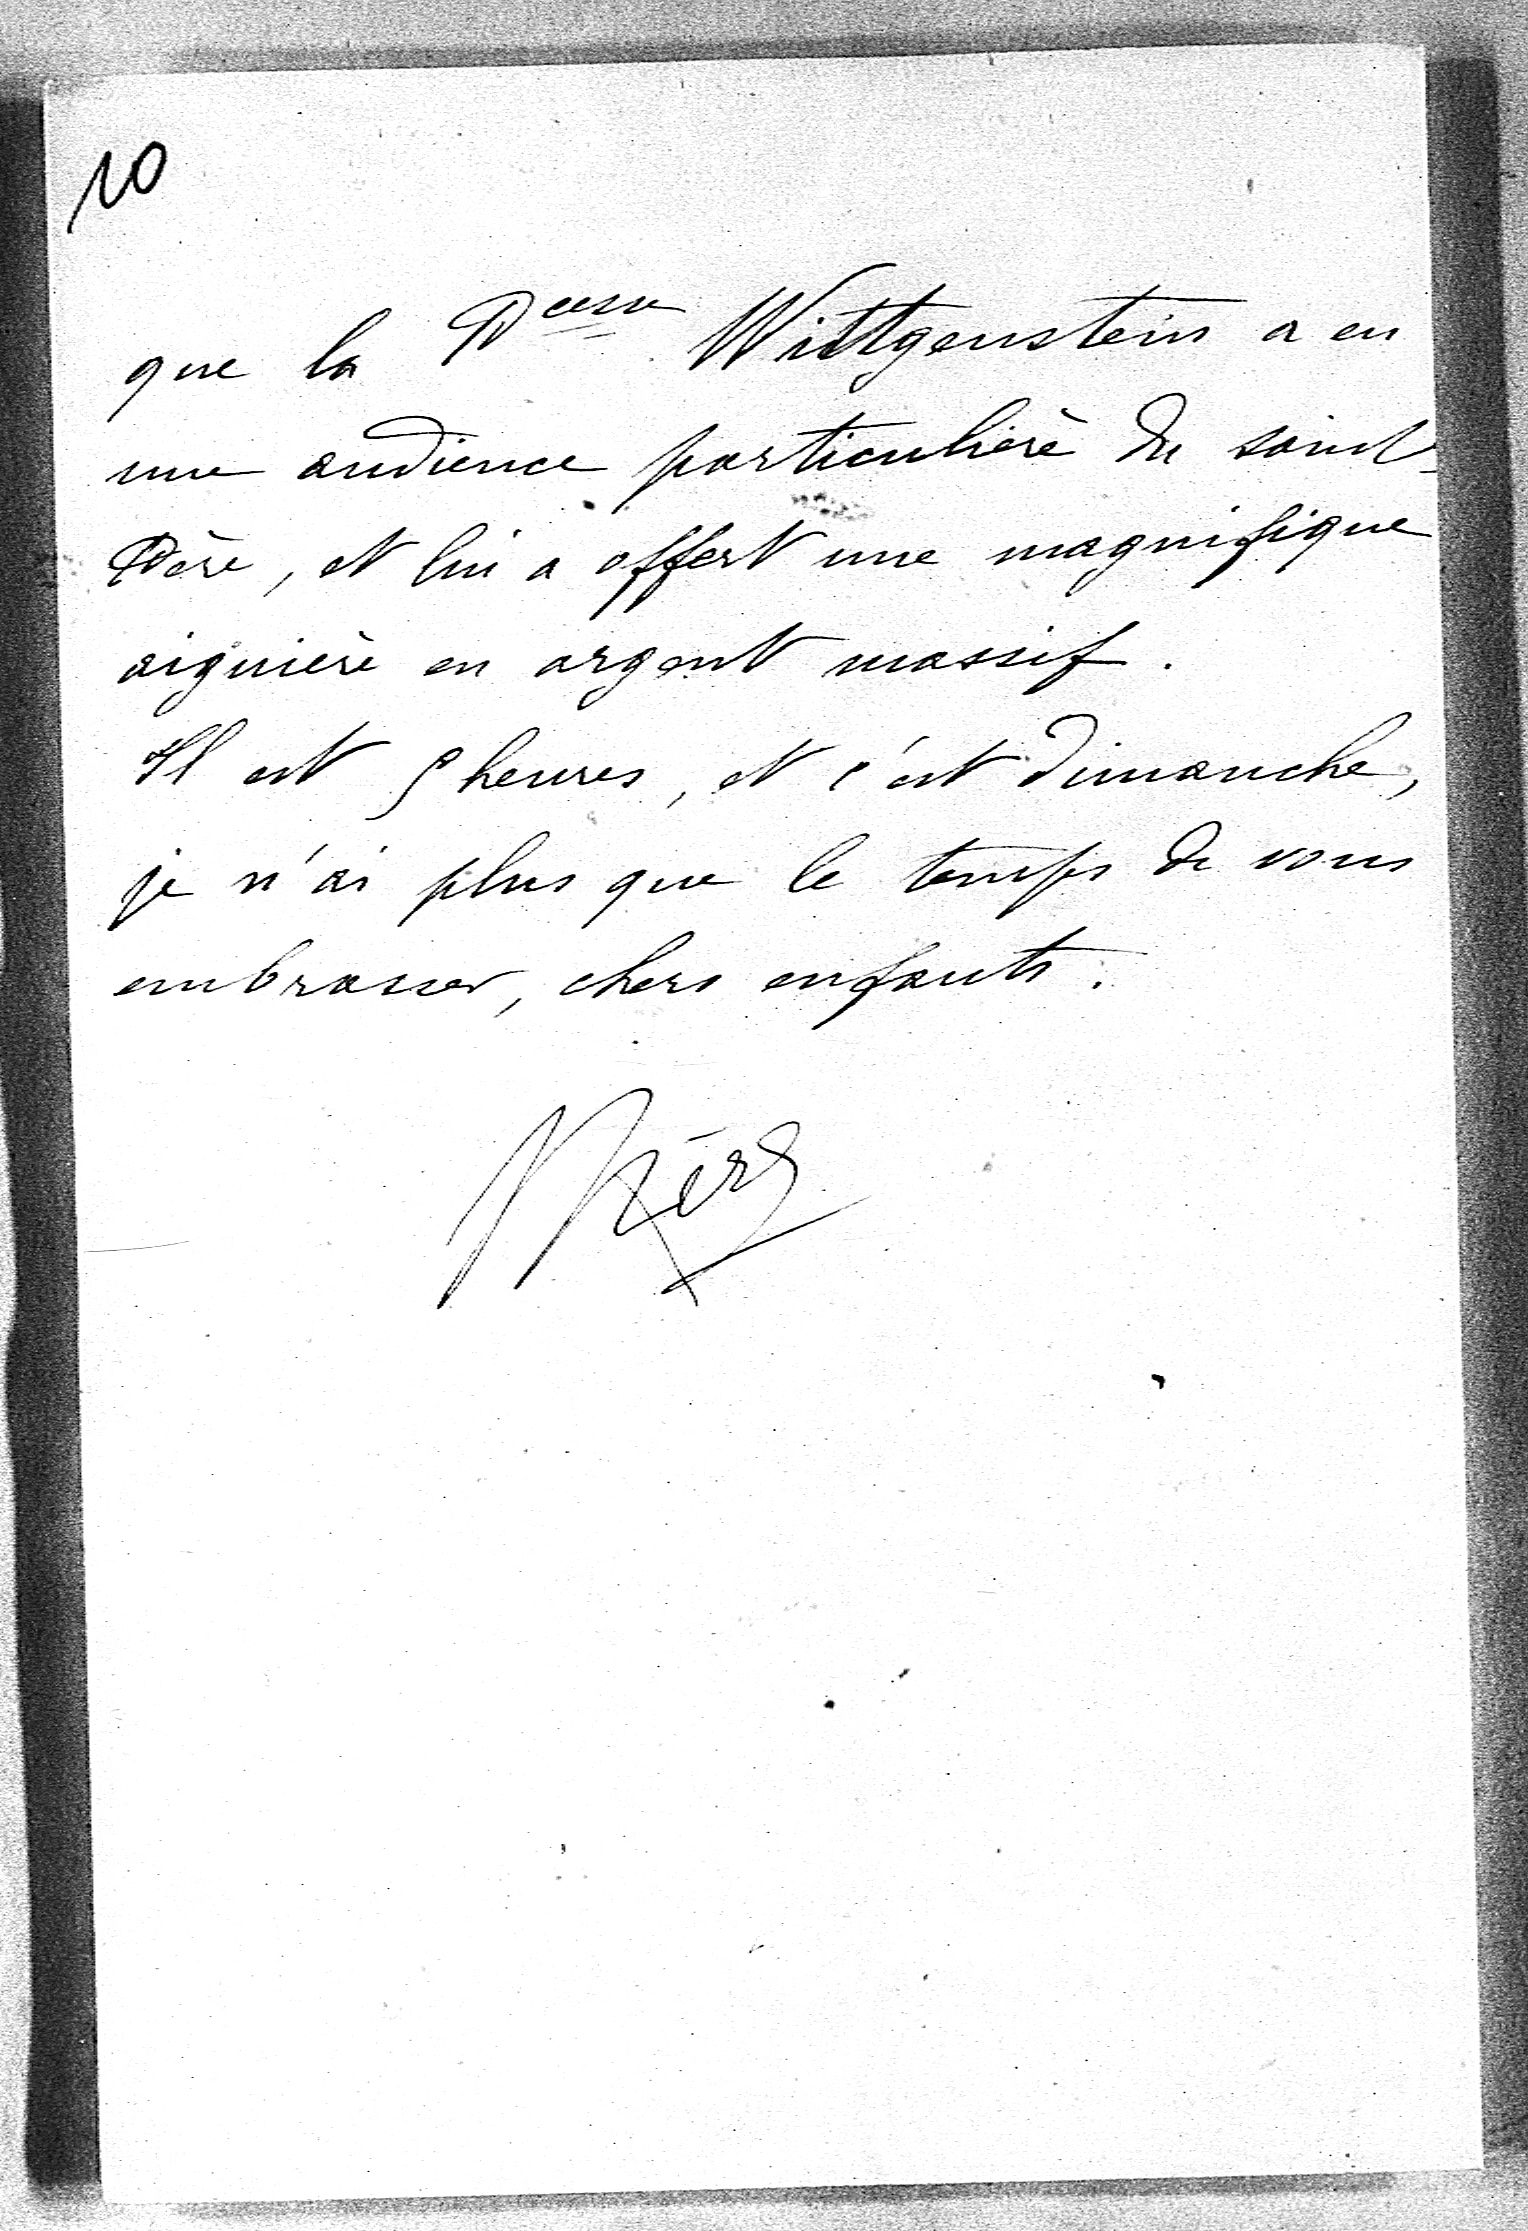 10
que la Pcesse Wittgenstein a eu
une audience particulière du saint-
Père, et lui a offert une magnifique
aiguière en argent massif.
Il est 5 heures, et c'est dimanche,
je n'ai plus que le temps de vous
embrasser, chers enfants.